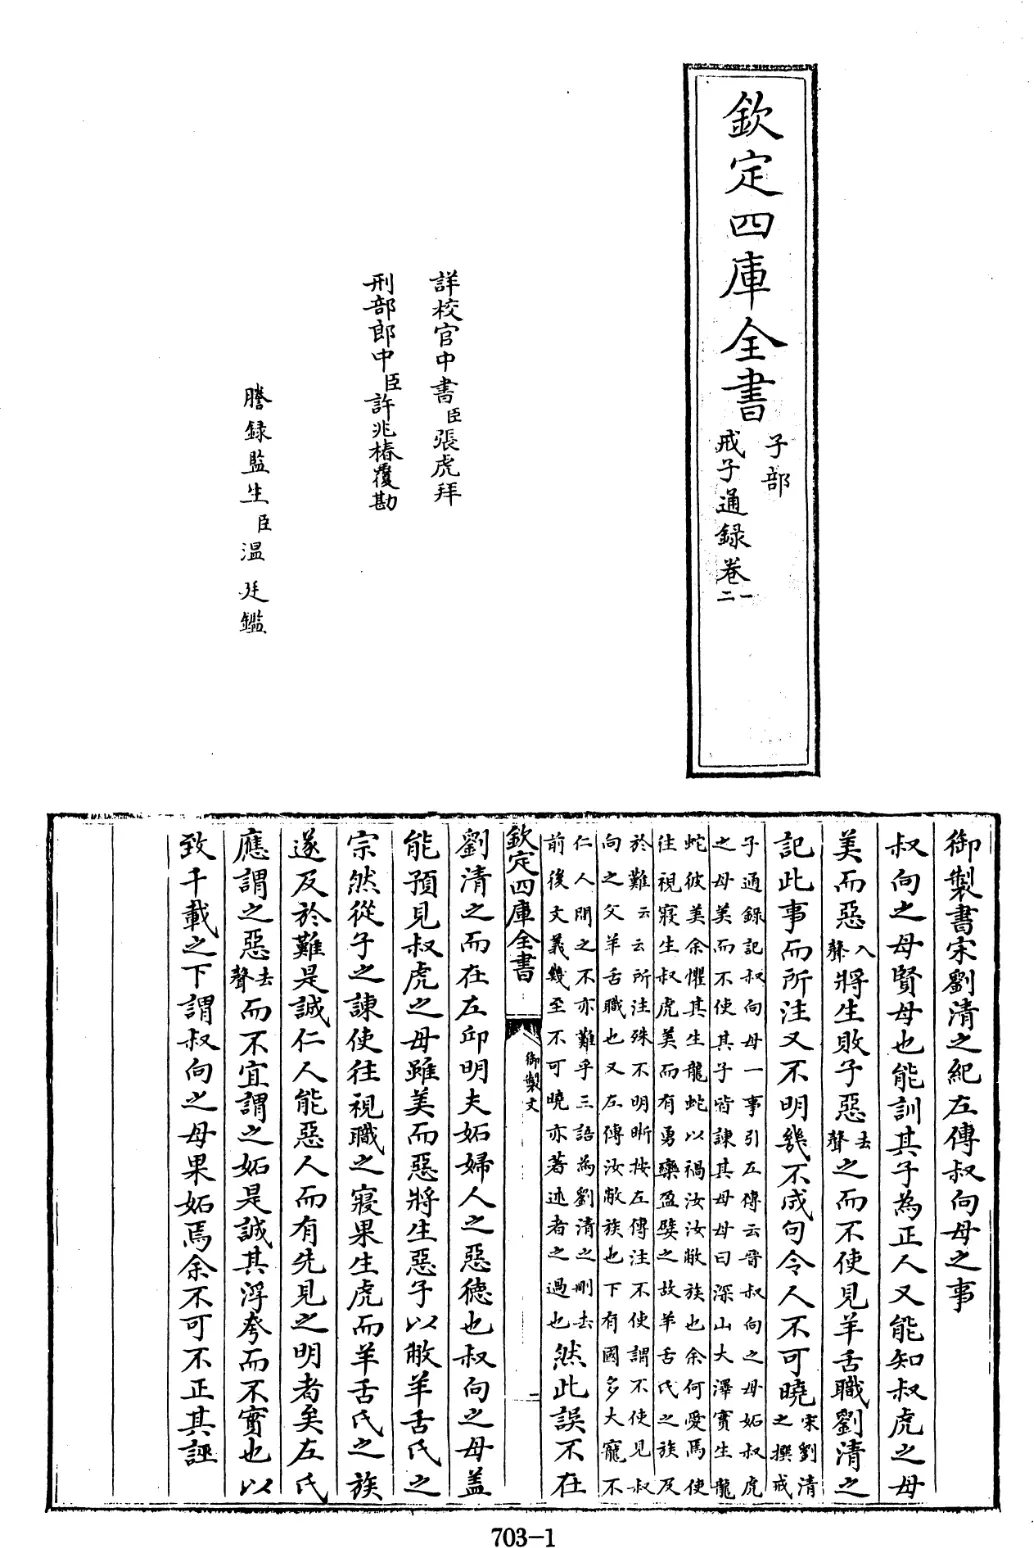 欽定四庫全書
子部
戒子通録卷一
二
詳校官中書臣張虎拜
刑部郎中臣許兆椿覆勘
謄録監生臣温廷鑑
御製書宋劉清之紀左傳叔向母之事
叔向之母賢母也能訓其子為正人又能知叔虎之母
美而惡入聲將生敗子惡去聲之而不使見羊舌職劉清之
記此事而所注又不明幾不成句令人不可曉宋劉清之撰戒
子通録記叔向母一事引左傳云晉叔向之母妬叔虎
之母美而不使其子皆諫其母母曰深山大澤實生龍
蛇彼美余懼其生龍蛇以禍汝汝敝族也余何愛焉使
往視寢生叔虎美而有勇欒盈嬖之故羊舌氏之族及
於難云云所注殊不明晰按左傳注不使謂不使見叔
向之父羊舌職也又左傳汝敝族也下有國多大寵不
仁人間之不亦難乎三語為劉清之刪去
前後文義幾至不可曉亦著述者之過也然此誤不在
欽定四庫全書
御製文
二
劉清之而在左邱明夫妬婦人之惡德也叔向之母盖
能預見叔虎之母雖美而惡將生惡子以敝羊舌氏之
宗然從子之諫使往視職之寢果生虎而羊舌氏之族
遂及於難是誠仁人能惡人而有先見之明者矣左氏
應謂之惡去聲而不宜謂之妬是誠其浮夸而不實也以
致千載之下謂叔向之母果妬焉余不可不正其誣
703-1